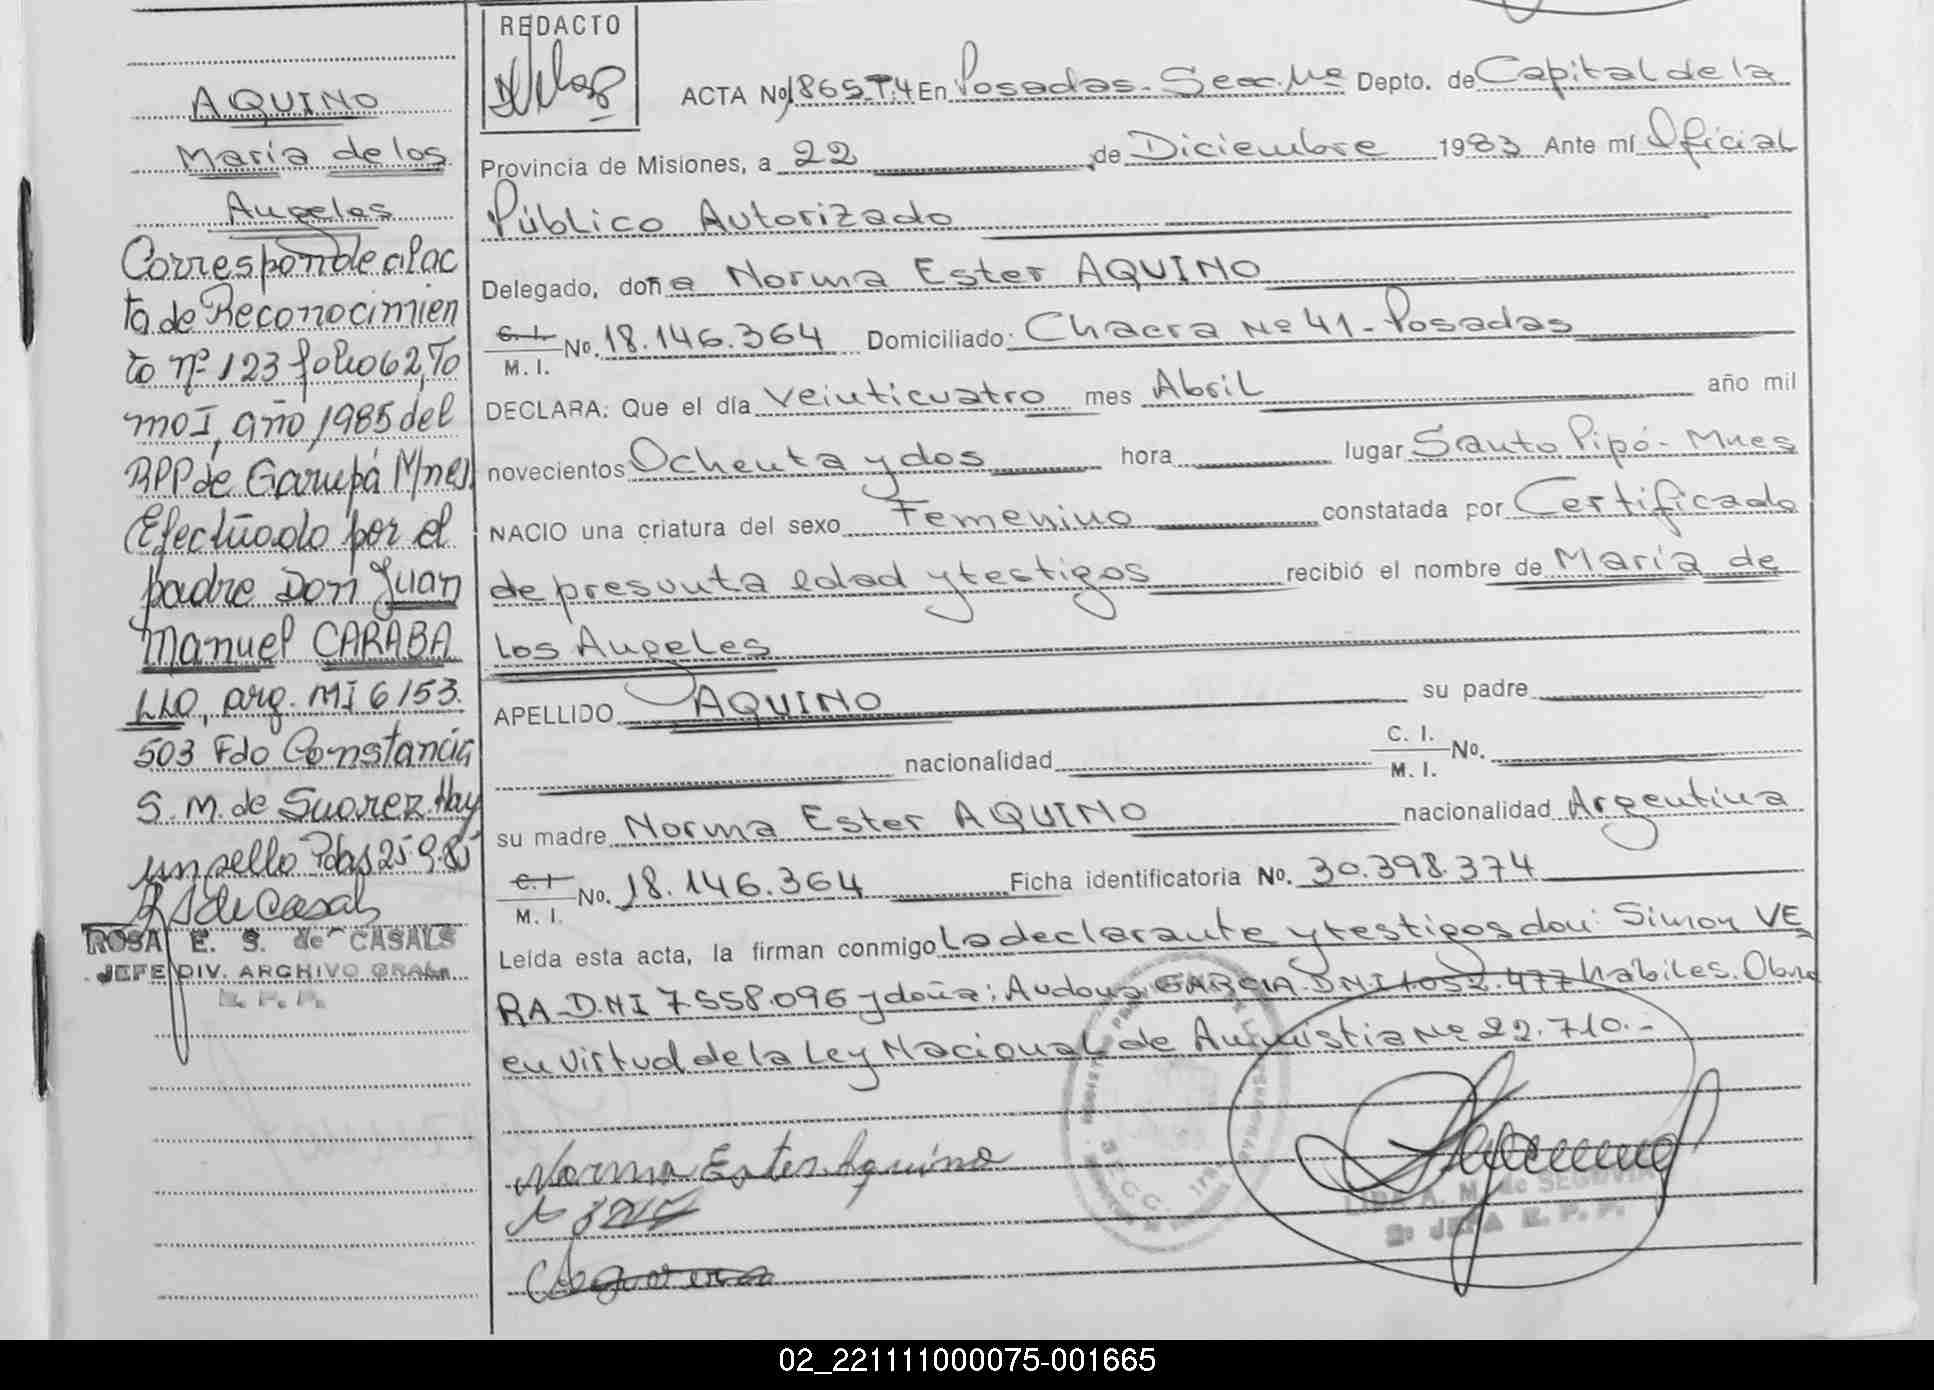 AQUINO
María de los
Angeles
Corresponde al ac
ta de Reconocimien
to nº 123 folio 62, To
mo I, año 1985 del
RPP de Garupá Mnes
Efectuado por el
padre Don Juan
Manuel CARABA
LLO, arg. MI 6153.
503 Fdo Constancia
S. M. de Suarez. Hay
un sello Pdas 25-9-85
ROSA E. S. de CASALS
JEFE DIV. ARCHIVO GRAL.
R. P. P.
REDACTO
ACTA No 1865 T.4 En Posadas. Secc. 1ra Depto. de Capital de la
Provincia de Misiones, a 22 de Diciembre 1983 Ante mí Oficial
Público Autorizado
Delegado, doña Norma Ester AQUINO
C. I.
M. I. No. 18.146.364 Domiciliado: Chacra Nº 41 - Posadas
DECLARA: Que el día veinticuatro mes Abril año mil
novecientos Ochenta y dos hora lugar Santo Pipó - Mnes
NACIO una criatura del sexo Femenino constatada por Certificado
de presunta edad y testigos recibió el nombre de María de
los Angeles
APELLIDO AQUINO su padre
nacionalidad C. I.
M. I. No.
su madre Norma Ester AQUINO nacionalidad Argentina
C. I.
M. I. No. 18.146.364 Ficha identificatoria No. 30.398.374
Leída esta acta, la firman conmigo La declarante y testigos don: Simon VE
RA D.N.I 7.558.096 y doña: Audona GARCIA D.N.I 1.052.477 habiles. Obra
en virtud de la Ley Nacional de Amnistia Nº 22.710.-
Norma Ester Aquino
LIDA A. M. de SEGOVIA
2º JEFA R. P. P.
02_221111000075-001665